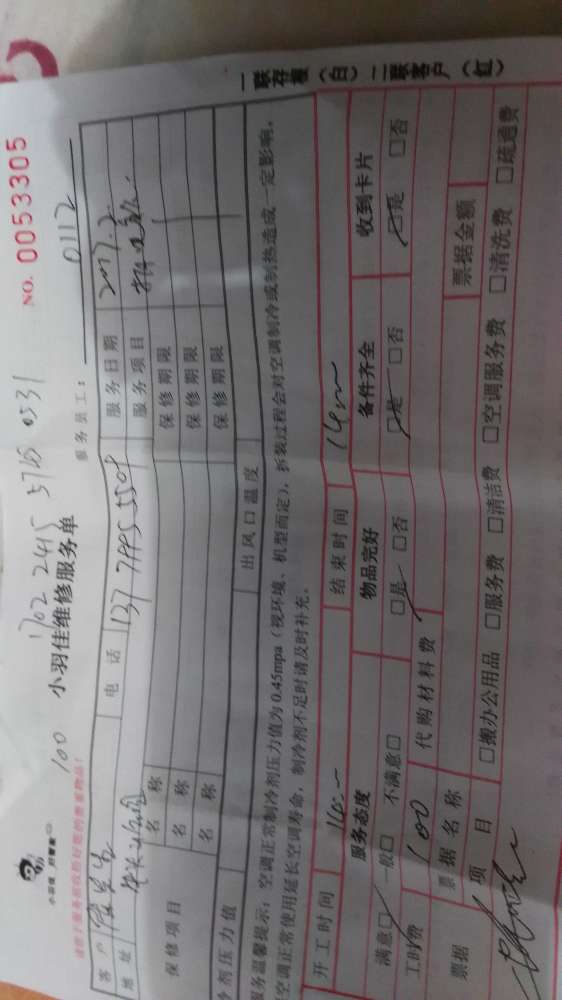 小羽佳 好管家
100 1702 2415 5745 0531
小羽佳维修服务单
NO. 0053305
请您于服务前收拾好您的贵重物品!
服务员工: 0112
客户 电话 服务日期 2017.2.
地址 服务项目
保修项目 名称 保修期限
名称 保修期限
名称 保修期限
冷剂压力值 出风口温度
服务温馨提示:空调正常制冷剂压力值为0.45mpa(视环境、机型而定),拆装过程会对空调制冷或制热造成一定影响,
空调正常使用延长空调寿命,制冷剂不足时请及时补充。
开工时间 结束时间
服务态度 物品完好 备件齐全 收到卡片
满意□ 一般□ 不满意□ □是 □否 □是 □否 □是 □否
工时费 100 代购材料费
票据 票据名称 票据金额
项目 □搬办公用品 □服务费 □清洁费 □空调服务费 □清洗费 □疏通费
一联存根(白)二联客户(红)